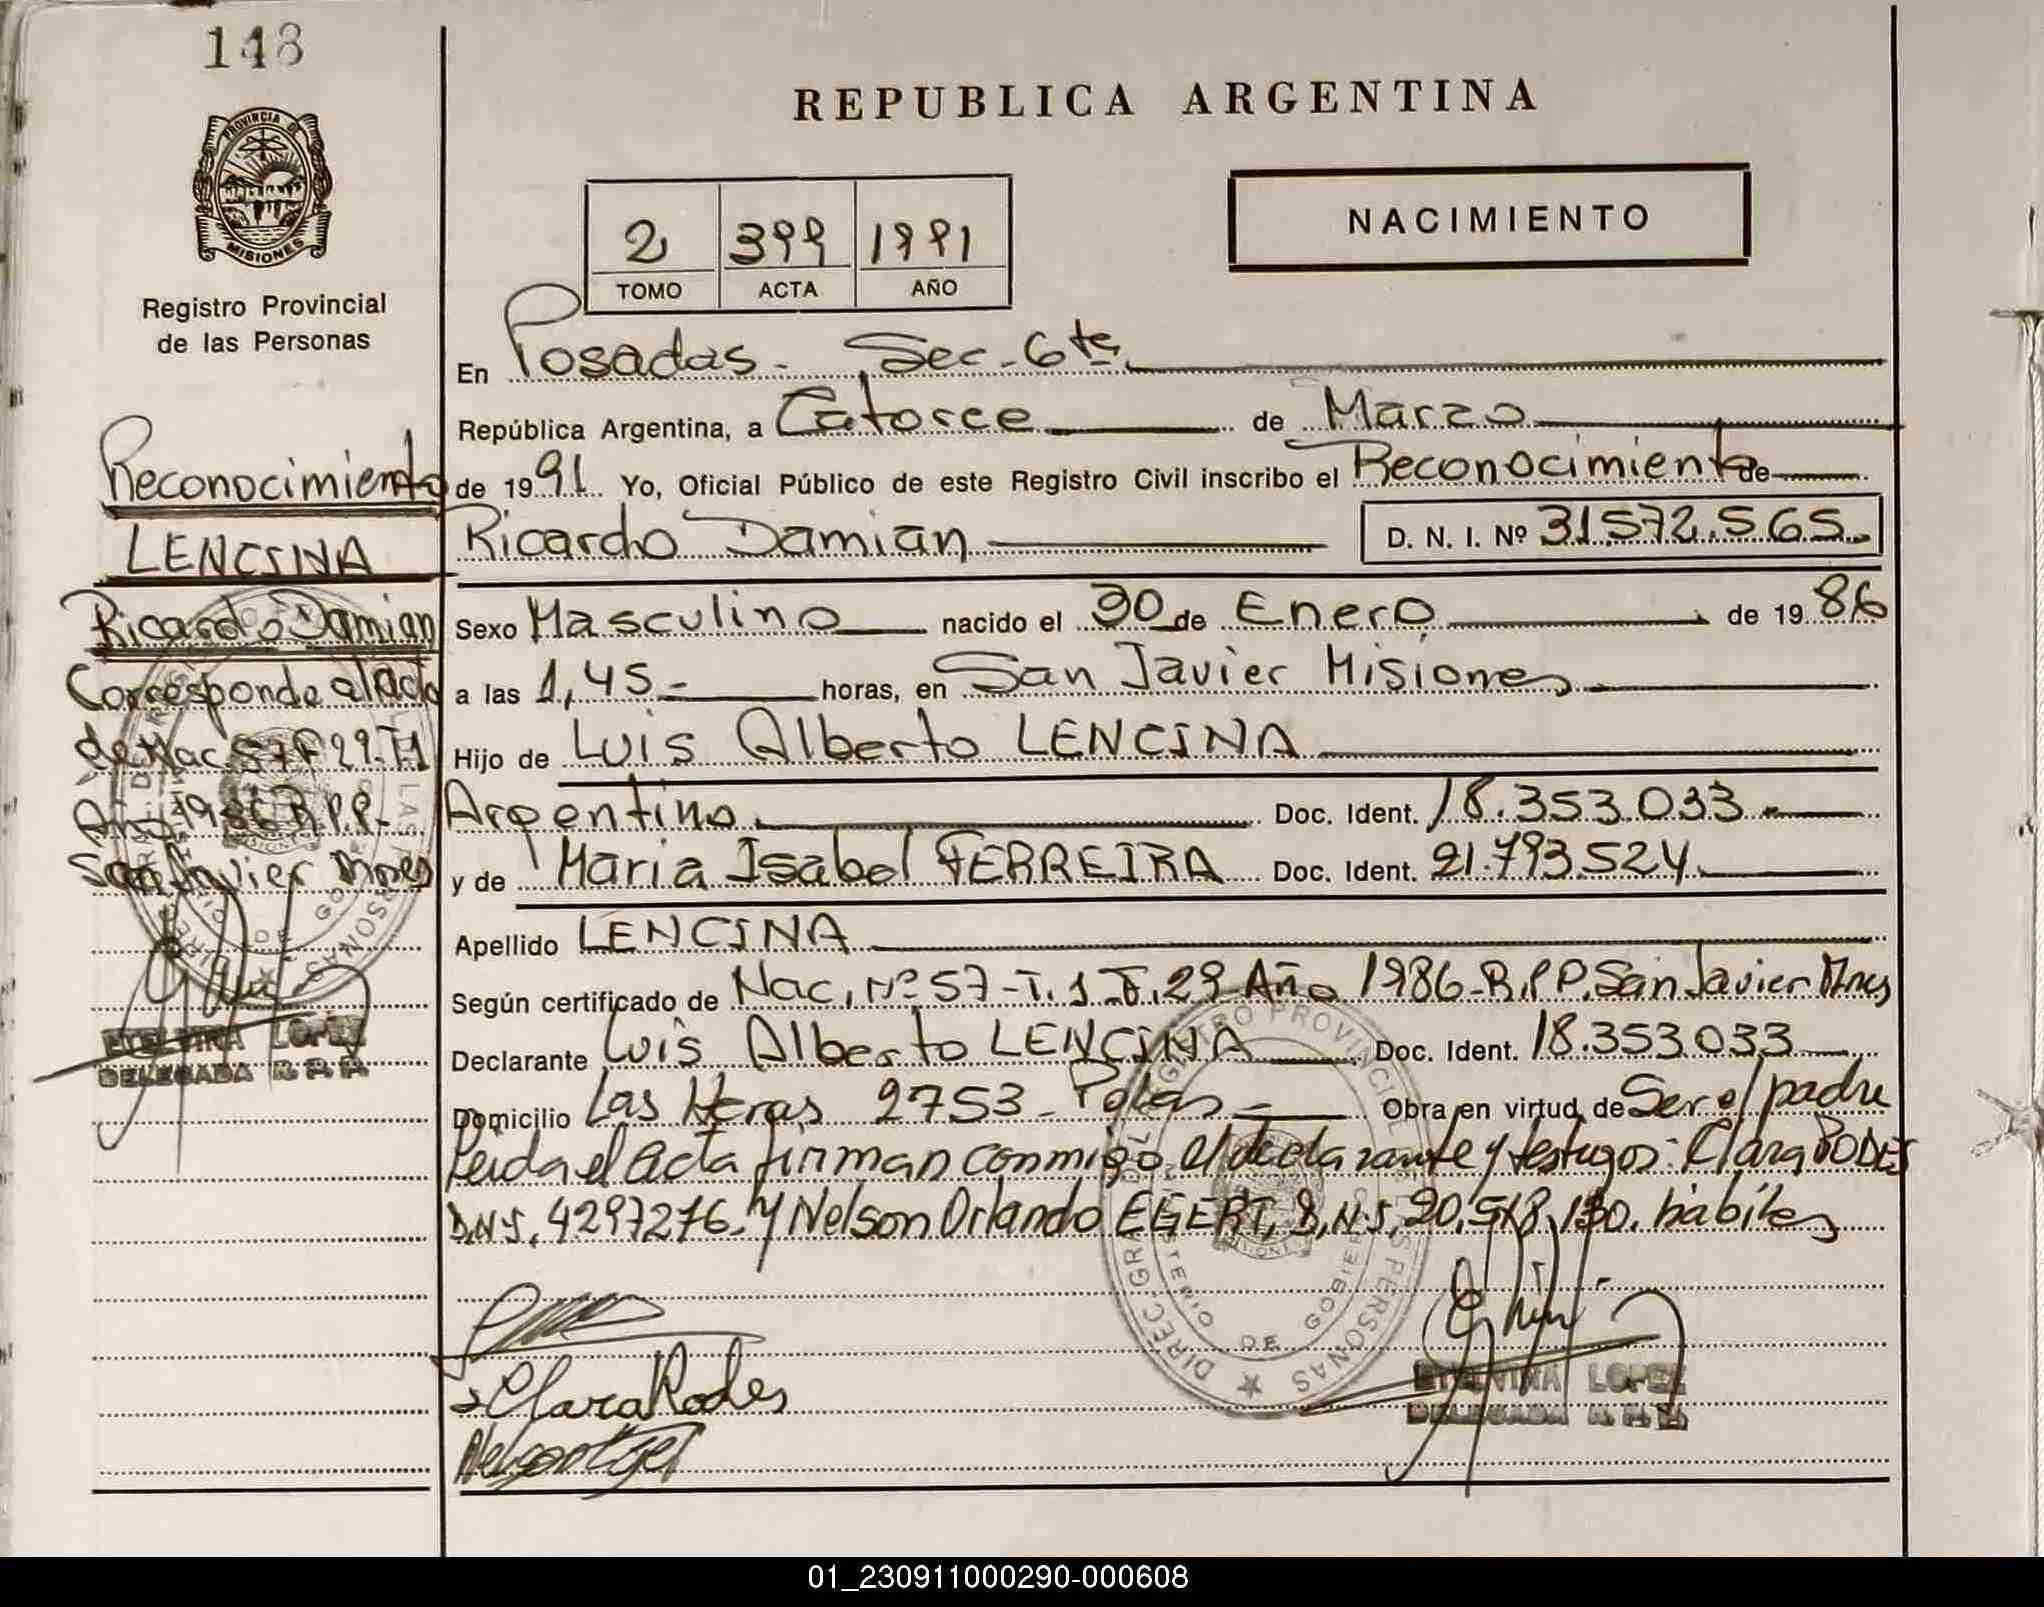 148
REPUBLICA ARGENTINA
PROVINCIA DE
MISIONES
Registro Provincial
de las Personas
NACIMIENTO
2 399 1991
TOMO ACTA AÑO
En Posadas - Sec. 6ta
República Argentina, a Catorce de Marzo
de 1991. Yo, Oficial Público de este Registro Civil inscribo el Reconocimiento de
Ricardo Damian D. N. I. Nº 31.572.565.
Sexo Masculino nacido el 30 de Enero de 1986
a las 1,45 - horas, en San Javier Misiones
Hijo de Luis Alberto LENCINA
Argentino Doc. Ident. 18.353.033
y de Maria Isabel FERREIRA Doc. Ident. 21.793.524
Apellido LENCINA
Según certificado de Nac. Nº 57-T.1-F.29 Año 1986-R.P.P. San Javier Mnes
Declarante Luis Alberto LENCINA Doc. Ident. 18.353.033
Domicilio Las Heras 2753 - Pdas - Obra en virtud de Ser el padre
Leida el acta firman conmigo el declarante y testigos: Clara RODES
D.N.I. 4297276. Y Nelson Orlando EGERT, D.N.I. 20.518.130. hábiles
Clara Rodes
ETELVINA LOPEZ
DELEGADA R.P.P.
Reconocimiento
LENCINA
Ricardo Damian
Corresponde al acta
de Nac 57 F 29-T1
Año 1986 R.P.P.
San Javier Mnes
ETELVINA LOPEZ
DELEGADA R.P.P.
01_230911000290-000608